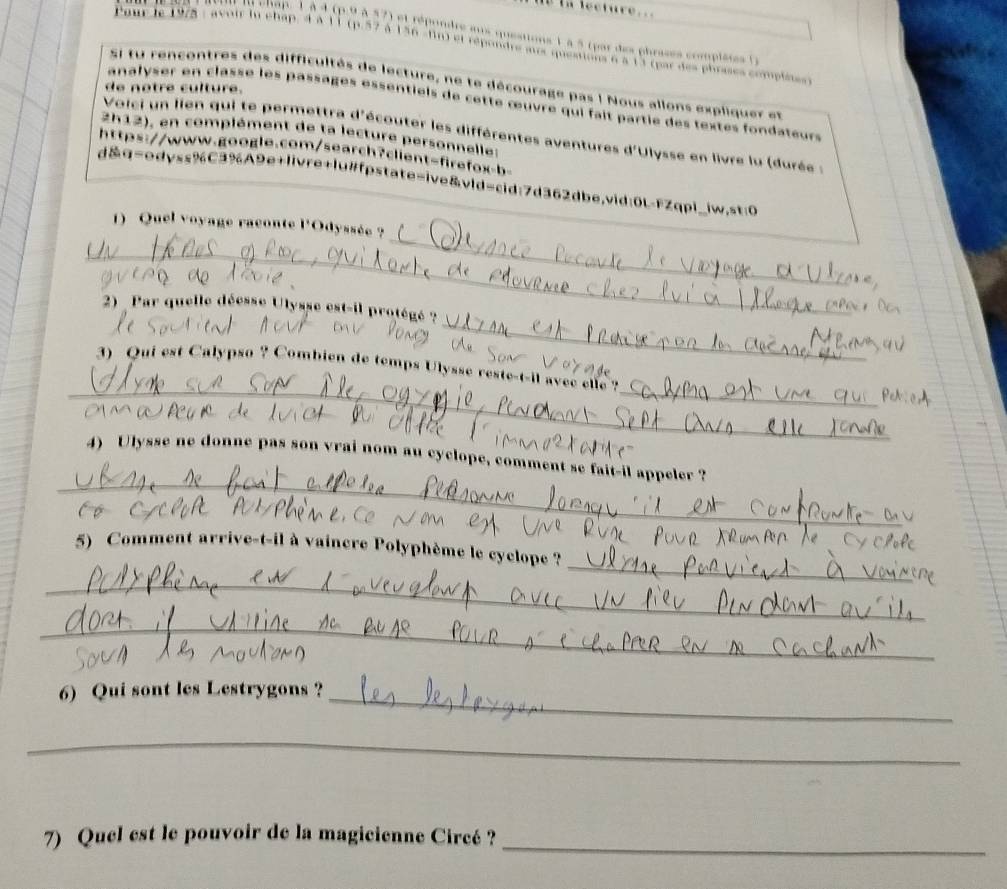 de la lecture...
chap. 1 à 4 (p.9 à 57) et répondre aux questions 1 à 5 (par des phrases complètes !)
Pour le 19/5 : avoir lu chap. 4 à 11 (p.57 à 156 -fin) et répondre aux questions 6 à 13 (par des phrases complètes)
Si tu rencontres des difficultés de lecture, ne te décourage pas ! Nous allons expliquer et
analyser en classe les passages essentiels de cette œuvre qui fait partie des textes fondateurs
de notre culture.
Voici un lien qui te permettra d'écouter les différentes aventures d'Ulysse en livre lu (durée :
2h12), en complément de ta lecture personnelle:
https://www.google.com/search?client=firefox-b-
d&q=odyss%C3%A9e+livre+lu#fpstate=ive&vld=cid:7d362dbe,vid:0L-FZqpi_iw,st:0
1) Quel voyage raconte l'Odyssée ? L'Odyssée
Un Héros grec, qui tente de retourner chez lui à
guerre de Troie.
2) Par quelle déesse Ulysse est-il protégé ? Ulysse est
de son voyage
3) Qui est Calypso ? Combien de temps Ulysse reste-t-il avec elle ? une qui retient
Ulysse sur son île, ogygie, pendant sept ans elle
amoureuse de lui et lui offre l'immortalité
4) Ulysse ne donne pas son vrai nom au cyclope, comment se fait-il appeler ?
Ulysse se fait appeler personne lorsqu'il est confronte au
cyclope Polyphème. ce nom est une ruse pour tromper le cyclope
5) Comment arrive-t-il à vaincre Polyphème le cyclope ? Ulysse parvient à vaincre
Polyphème en l'aveuglant avec un pieu pendant qu'il
dort. il utilise sa ruse pour s'echapper en se cachant
sous les moutons
6) Qui sont les Lestrygons ? les lestrygons
7) Quel est le pouvoir de la magicienne Circé ?